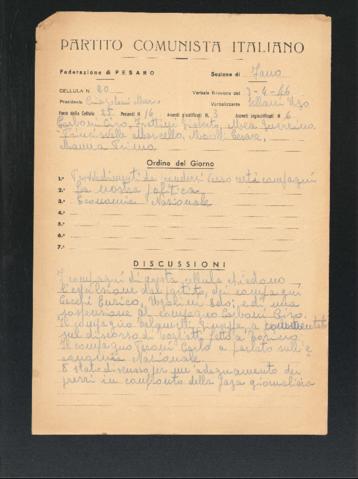 PARTITO COMUNISTA ITALIANO
Federazione di PESARO Sezione di Fano
CELLULA N. 80 Verbale Riunione del 3-4-46
Presidente Verbalizzante
Forza della Cellula 25 Presenti N. 16 Assenti giustificati N. 3 Assenti ingiustificati N. 6
Marcello,
Ordine del Giorno
1.° Provvedimenti da prendere verso certi compagni
2.° La nostra politica
3.° Economia Nazionale
4.°
5.°
6.°
7.°
DISCUSSIONI
I compagni di questa cellula chiedono
l'espulsione dal partito dei compagni
Cecchi Enrico, ed una
al compagno Carboni Ciro.
Il compagno Giuseppe a commentato
sul discorso di Togliatti fatto a Torino
Il compagno Carlo a parlato sull'e
conomia Nazionale
È stato discusso per un adeguamento dei
prezzi in confronto della paga giornaliera